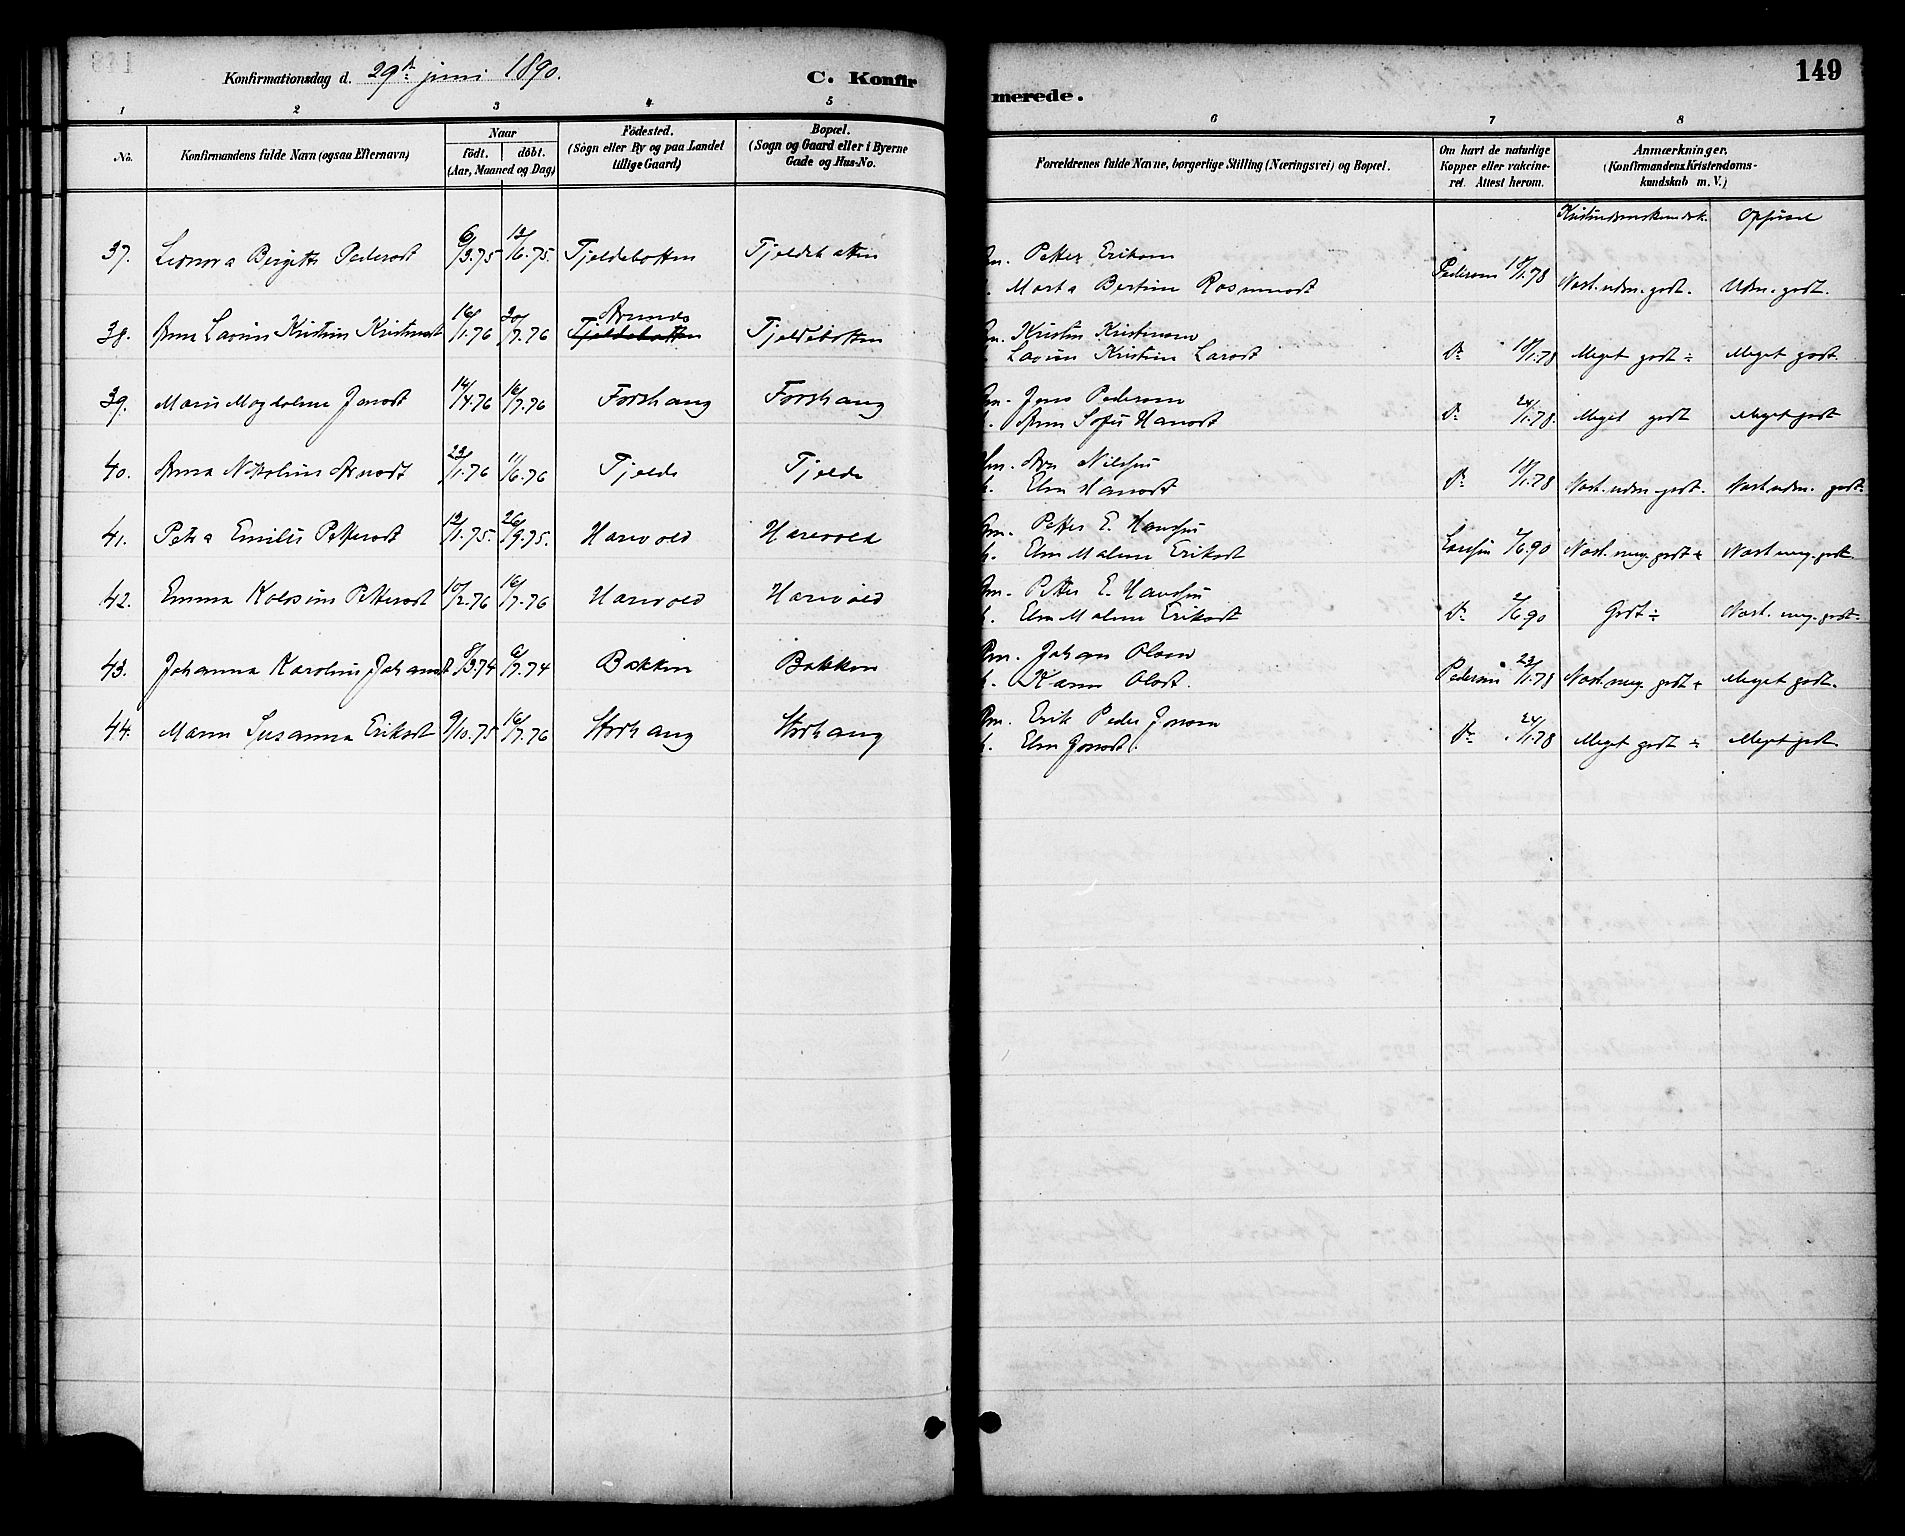 149
Konfirmationsdag d. 29de juni 1890. C. Konfirmerede.
1 2 3 4 5 6 7 8
No. Konfirmandens fulde Navn (ogsaa Efternavn) Naar födt. döbt. (Aar, Maaned og Dag) Födested. (Sogn eller By og paa Landet tillige Gaard) Bopæl. (Sogn og Gaard eller i Byerne Gade og Hus-No.) Forældrenes fulde Navne, borgerlige Stilling (Næringsvei) og Bopæl. Om havt de naturlige Kopper eller vakcineret. Attest herom. Anmærkninger, (Konfirmandens Kristendomskundskab m. V.)
Kristendomskundsk. Opførsel
37. Leonora Birgitte Pedersdt 6/3.75 12/6.75. Tjeldebotten Tjeldebotten Petter Eriksen
Marta Bertine Rasmusdt Pedersen 18/1.78 Næst. udm. godt. Udm. godt.
38. Anna Lavine Kristine Kristensdt 16/1.76 30/7.76 Tjeldebotten Tjeldebotten Kristen Kristensen
Lavine Kristine Larsdt Do 18/1.78 Meget godt ÷ Meget godt.
39. Marie Magdalene Jensdt 14/4.76 16/7.76 Forshaug Forshaug Jens Pedersen
Anne Sofie Hansdt Do 24/1.78. Meget godt Meget godt
40. Anna Nikoline Arnesdt 23/1.76 11/6.76 Tjelde Tjelde Arn Nilssen
Elen Hansdt Do 18/1.78 Næst. udm. godt. Næst. udm. godt.
41. Petra Emilie Pettersdt 12/1.75. 26/9.75. Harevold Harevold Gm. Petter E. Hanssen
h. Elen Malene Eriksdt Larssen 2/6.90 Næst. meg. godt ÷ Næst. meg. godt
42. Emma Kolosine Pettersdt 10/2.76 16/7.76 Harevold Harevold Gm. Petter E. Hanssen
h. Elen Malene Eriksdt Do 2/6.90 Godt ÷ Næst. meg. godt.
43. Johanna Karoline Johansdt 8/3.74 6/7.74 Bakken Bakken Johan Olsen
h. Karen Olsdt. Pedersen 23/1.78 Næst. meg. godt ÷ Meget godt.
44. Maren Susanna Eriksdt 9/10.75 16/7.76 Storhaug Storhaug Erik Peder Jonsen
h. Elen Jonsdt. Do 24/1.78 Meget godt ÷ Meget godt